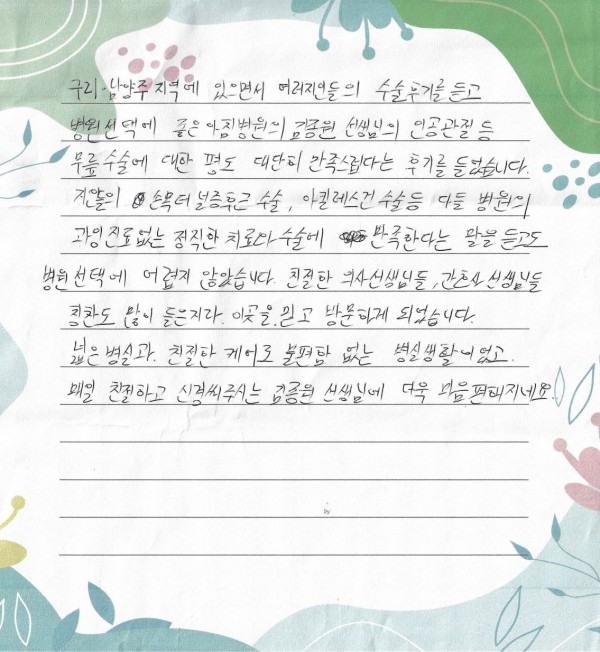 구리·남양주 지역에 있으면서 여러지인들의 수술후기를 듣고
병원선택에 좋은아침병원의 김종원 선생님의 인공관절 등
무릎수술에 대한 평도 대단히 만족스럽다는 후기를 들었습니다.
지인들의 손목터널증후군 수술, 아킬레스건 수술등 다들 병원의
과잉진료없는 정직한 치료와 수술에 만족한다는 말을 듣고도
병원선택에 어렵지 않았습니다. 친절한 의사선생님들, 간호사 선생님들
칭찬도 많이 들은지라. 이곳을 믿고 방문하게 되었습니다.
넓은병실과. 친절한 케어로 불편함 없는 병실생활이었고.
매일 친절하고 신경써주시는 김종원 선생님에 더욱 마음편해지네요.